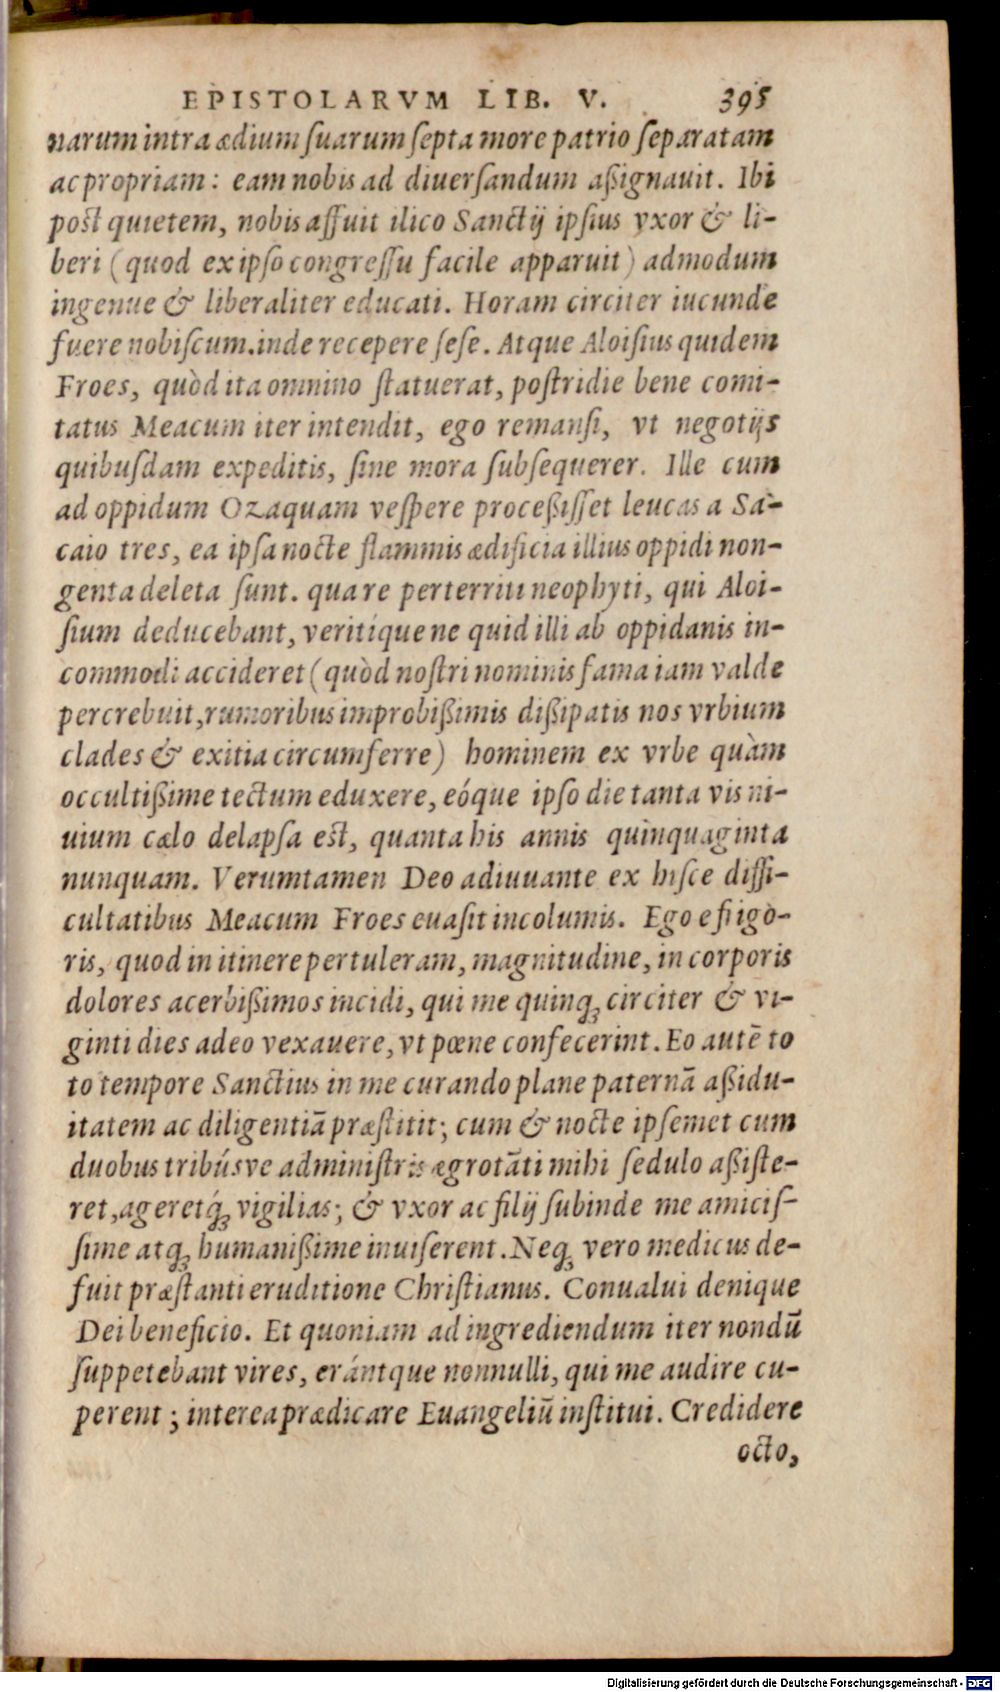 EPISTOLARVM LIB. V. 395
narum intra ædium ſuarum ſepta more patrio ſeparatam
ac propriam: eam nobis ad diuerſandum aßignauit. Ibi
post quietem, nobis affuit ilico Sanctij ipſius vxor & li-
beri (quod ex ipſo congreſſu facile apparuit) admodum
ingenue & liberaliter educati. Horam circiter iucunde
fuere nobiſcum. inde recepere ſeſe. Atque Aloiſius quidem
Froes, quòd ita omnino ſtatuerat, poſtridie bene comi-
tatus Meacum iter intendit, ego remanſi, vt negotijs
quibuſdam expeditis, ſine mora ſubſequerer. Ille cum
ad oppidum Ozaquam veſpere proceßiſſet leucas a Sa-
caio tres, ea ipſa nocte flammis ædificia illius oppidi non-
genta deleta ſunt. quare perterriti neophyti, qui Aloi-
ſium deducebant, veritíque ne quid illi ab oppidanis in-
commodi accideret (quòd noſtri nominis fama iam valde
percrebuit, rumoribus improbißimis dißipatis nos vrbium
clades & exitia circumferre) hominem ex vrbe quàm
occultißime tectum eduxere, eóque ipſo die tanta vis ni-
uium cælo delapſa est, quanta his annis quinquaginta
nunquam. Verumtamen Deo adiuuante ex hiſce diffi-
cultatibus Meacum Froes euaſit incolumis. Ego e frigo-
ris, quod in itinere pertuleram, magnitudine, in corporis
dolores acerbißimos incidi, qui me quinq; circiter & vi-
ginti dies adeo vexauere, vt pœne confecerint. Eo autē to
to tempore Sanctius in me curando plane paternā aßidu-
itatem ac diligentiā præſtitit; cum & nocte ipſemet cum
duobus tribúsve adminiſtris ægrotāti mihi ſedulo aßiſte-
ret, ageretq́; vigilias; & vxor ac filij ſubinde me amiciſ-
ſime atq; humanißime inuiſerent. Neq; vero medicus de-
fuit præſtanti eruditione Chriſtianus. Conualui denique
Dei beneficio. Et quoniam ad ingrediendum iter nondū
ſuppetebant vires, erántque nonnulli, qui me audire cu-
perent; interea prædicare Euangeliū inſtitui. Credidere
octo,
Digitalisierung gefördert durch die Deutsche Forschungsgemeinschaft - DFG